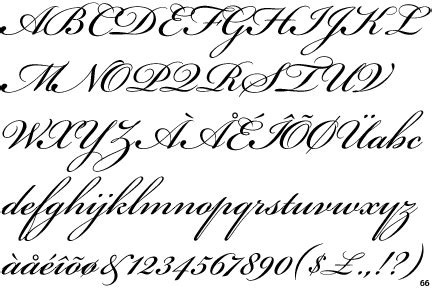 ABCDEFGHIJKL
MNOPQRSTUV
WXYZÀÅÉÎÕØÜabc
defghijklmnopqrstuvwxyz
àåéîõø&1234567890($£.,!?)
66